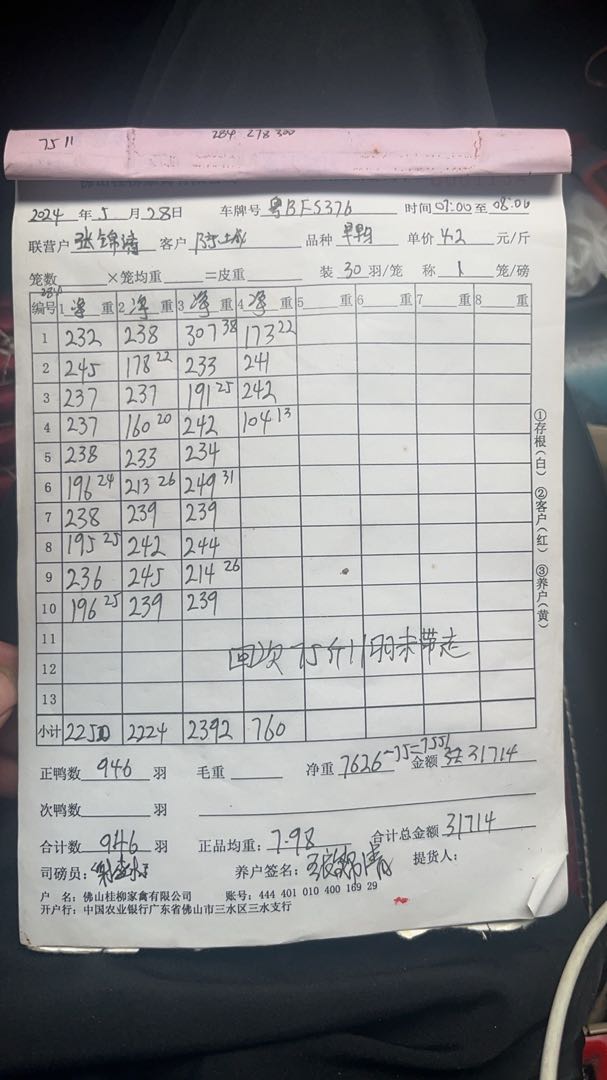 75 11
284 278 300
2024 年 5 月 28 日 车牌号 粤BFS376 时间 07:00 至 08:00
联营户 张锦清 客户 品种 单价 4.2 元/斤
笼数 ×笼均重 =皮重 装 30 羽/笼 称 1 笼/磅
284
编号 1 净 重 2 净 重 3 净 重 4 净 重 5 重 6 重 7 重 8 重
1 232 238 307 38 173 22
2 245 178 22 233 241
3 237 237 191 25 242
4 237 160 20 242 104 13
5 238 233 234
6 196 24 213 26 249 31
7 238 239 239
8 195 25 242 244
9 236 245 214 26
10 196 25 239 239
11
12 回次 75斤11羽未带走
13
小计 2250 2224 2392 760
正鸭数 946 羽 毛重 净重 7626-75=7551 金额 31714
次鸭数 羽
合计数 946 羽 正品均重: 7.98 合计总金额 31714
司磅员: 养户签名: 提货人:
户 名: 佛山桂柳家禽有限公司 账号: 444 401 010 400 169 29
开户行: 中国农业银行广东省佛山市三水区三水支行
①存根(白) ②客户(红) ③养户(黄)